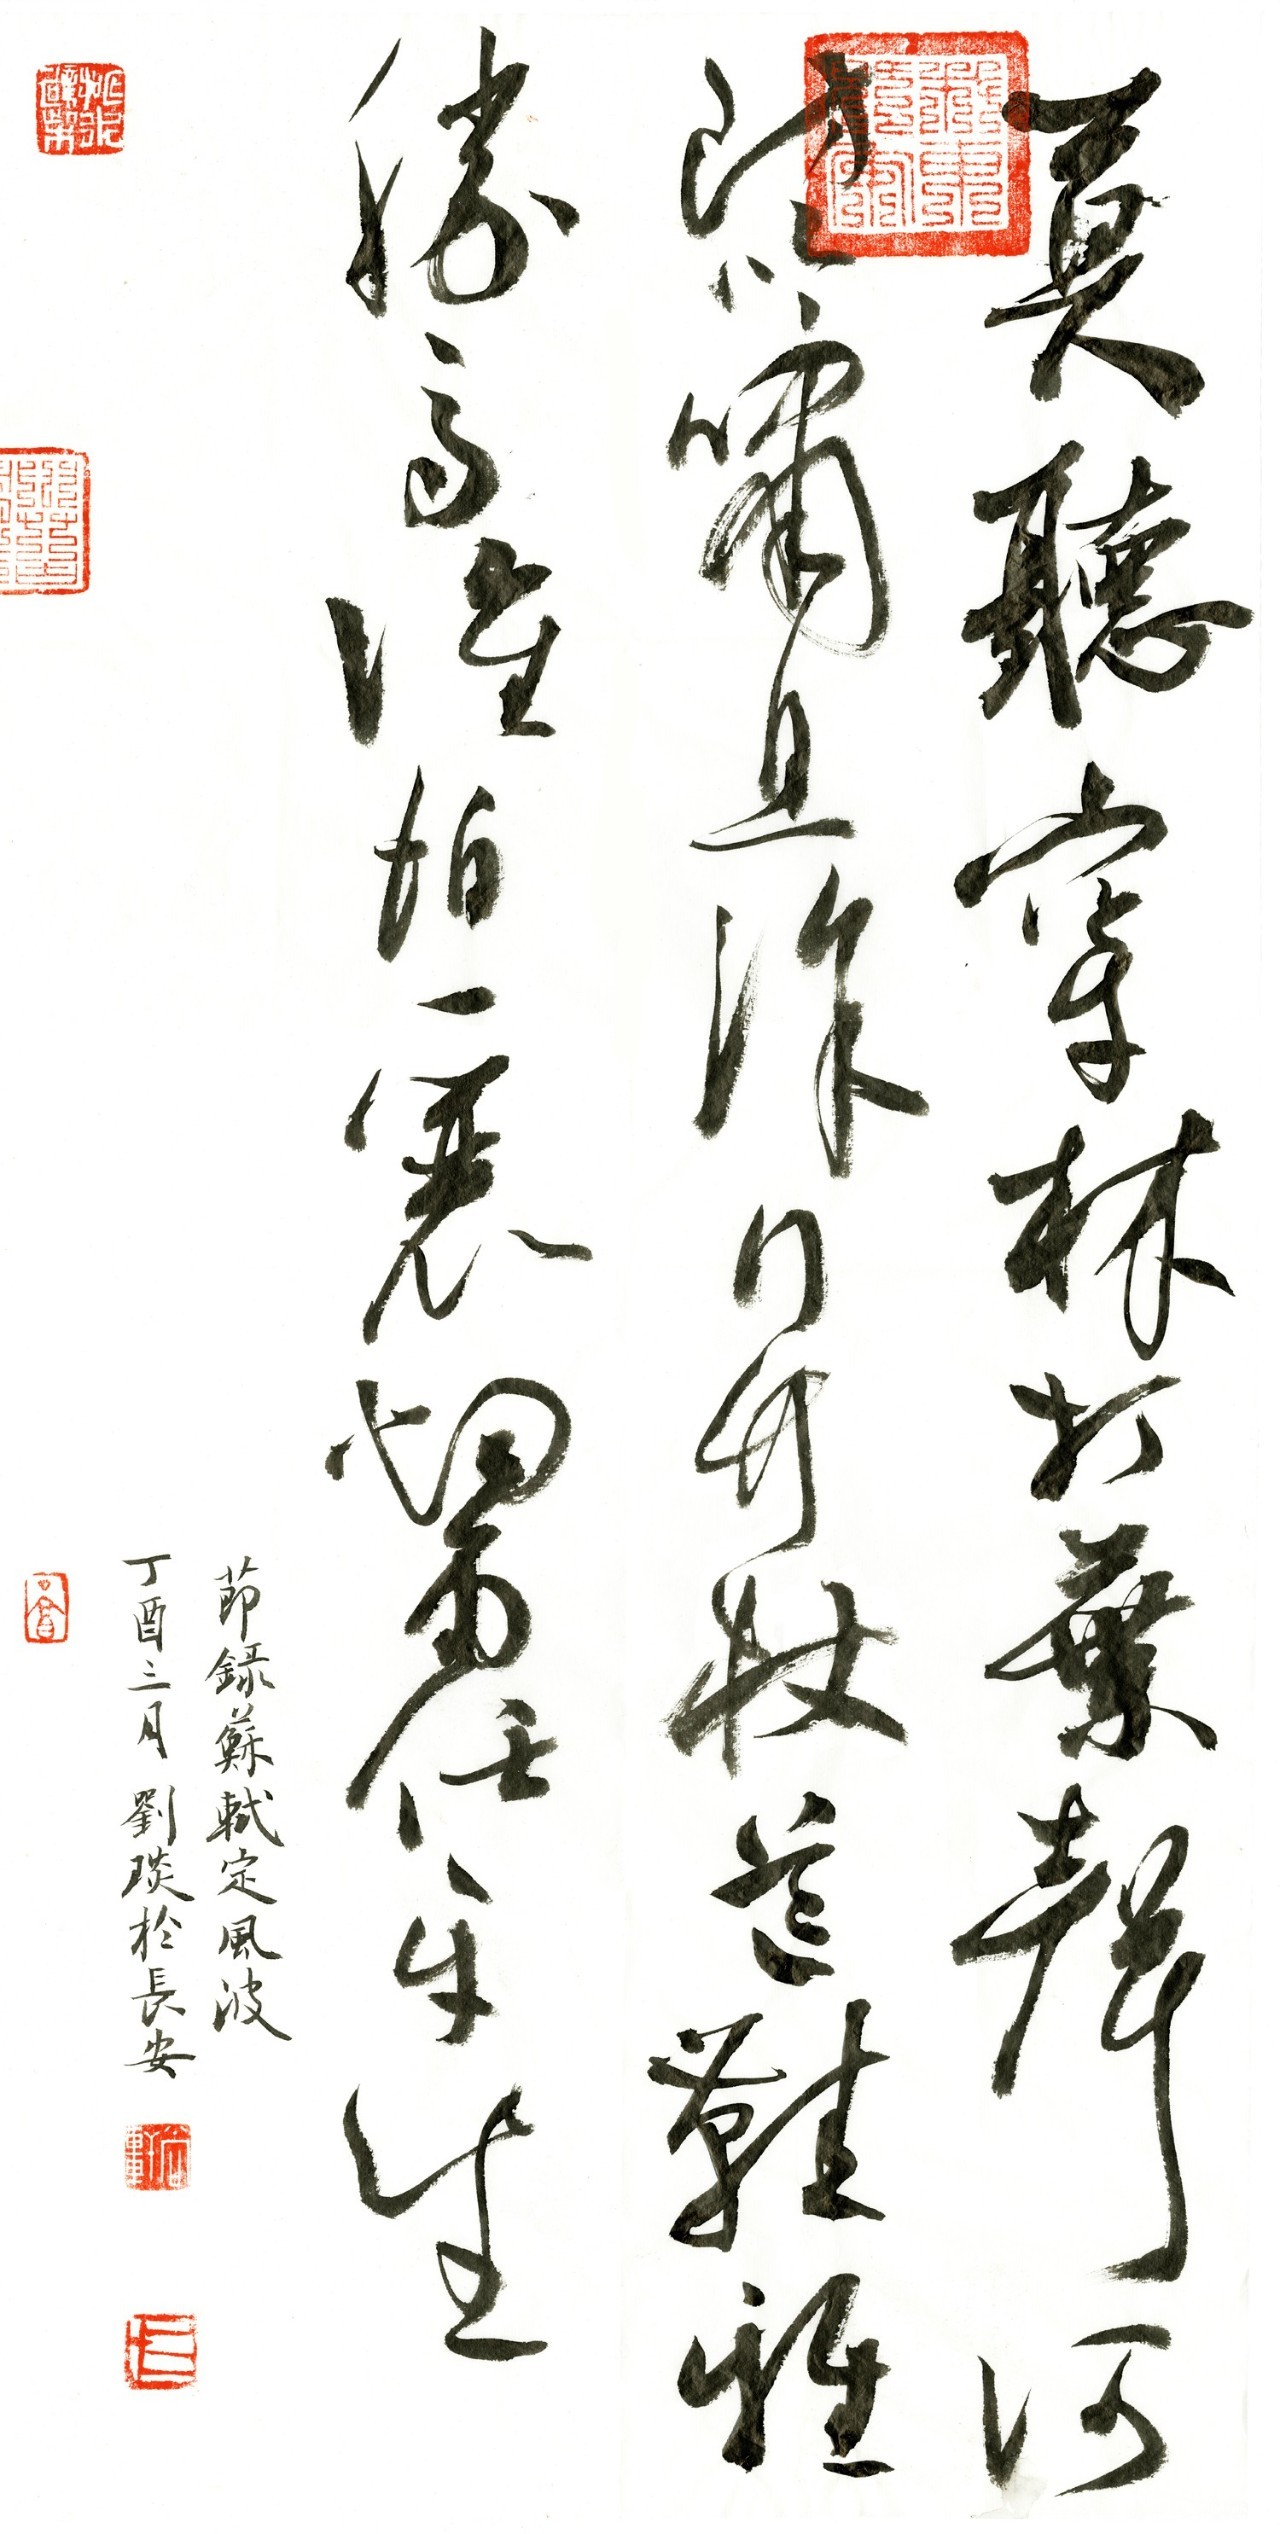 莫聽穿林打葉聲何
妨吟嘯且徐行竹杖芒鞋輕
勝馬誰怕一蓑烟雨任平生
節錄蘇軾定風波
丁酉三月劉琰於長安